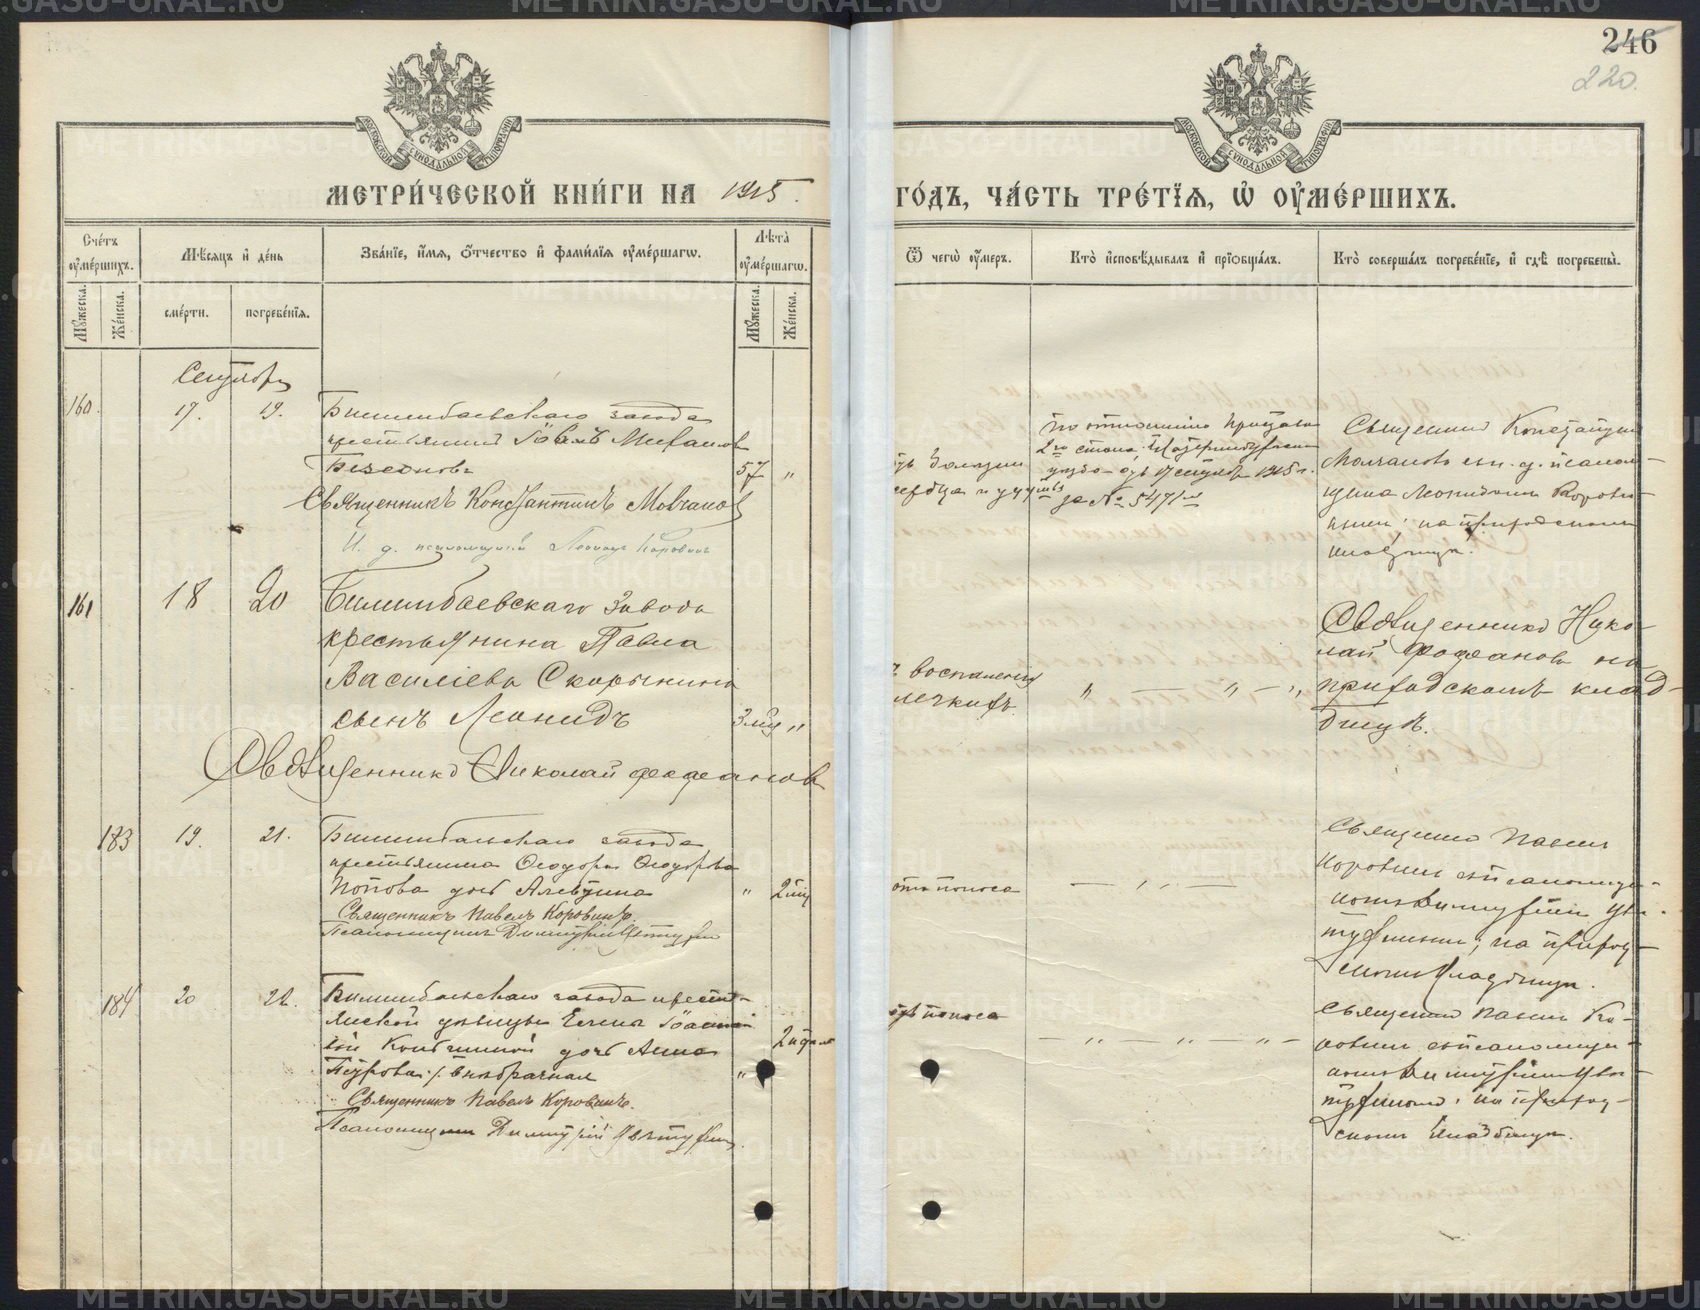 246
220.
МОСКОВСКОЙ СѴНОДАЛЬНОЙ ТИПОГРАФІИ
МОСКОВСКОЙ СѴНОДАЛЬНОЙ ТИПОГРАФІИ
МЕТРИ́ЧЕСКОЙ КНИ́ГИ НА 1915. ГО́ДЪ, ЧА́СТЬ ТРЕ́ТЇЯ, Ѡ҆ ОУ҆МЕ́РШИХЪ.
Сче́тъ оу҆ме́ршихъ.
Мꙋ́жеска.
Же́нска.
Мѣ́сяцъ и҆ де́нь
сме́рти.
погребе́нїѧ.
Зва́нїе, и҆́мѧ, ѻ҆́тчество и҆ фами́лїѧ оу҆ме́ршагѡ.
Лѣ̑та оу҆ме́ршагѡ.
Мꙋ́жеска.
Же́нска.
Ѿ чегѡ̀ оу҆́меръ.
Кто̀ и҆сповѣ́дывалъ и҆ прїѡбща́лъ.
Кто̀ соверша́лъ погребе́нїе, и҆ гдѣ̀ погребены̀.
Сентябрь
160. 17. 19. Билимбаевскаго завода
крестьянинъ Іовъ Михаилов
Безсоновъ 57 "
Священникъ Константинъ Мовчанов
И. д. псаломщика Леонидъ Коровинъ
отъ болезни
сердца
По отношенію Пристава
2го стана Екатеринбургскаго
уезда отъ 17 сентября 1915 г.
за № 5471
Священникъ Константинъ
Молчановъ съ и. д. псалом-
щика Леонидомъ Корови-
нымъ; на приходскомъ
кладбище.
161 18 20 Билимбаевскаго Завода
крестьянина Павла
Василіева Скорынина
сынъ Леонидъ 3 мѣс "
Священникъ Николай Феофановъ
воспаленія
легкихъ.
" — " — "
Священникъ Нико-
лай Феофановъ на
приходскомъ клад-
бищѣ.
183 19. 21. Билимбаевскаго завода
крестьянина Ѳеодора Ѳеодорова
Попова дочь Алевтина " 2 мѣс
Священникъ Павелъ Коровинъ.
Псаломщикъ Димитрій
отъ поноса
— " —
Священникъ Павелъ
Коровинъ съ псаломщи-
комъ Димитріемъ
на приход-
скомъ кладбищѣ.
184 20 22. Билимбаевскаго завода кресть-
янской дѣвицы Елены
дочь Анна
Петрова / внѣбрачная " 2 недѣли
Священникъ Павелъ Коровинъ.
Псаломщикъ Димитрій
отъ поноса
— " — " — " —
Священникъ Павелъ Ко-
ровинъ съ псаломщи-
комъ Димитріемъ
на приход-
скомъ кладбищѣ.
METRIKI.GASU-URAL.RU